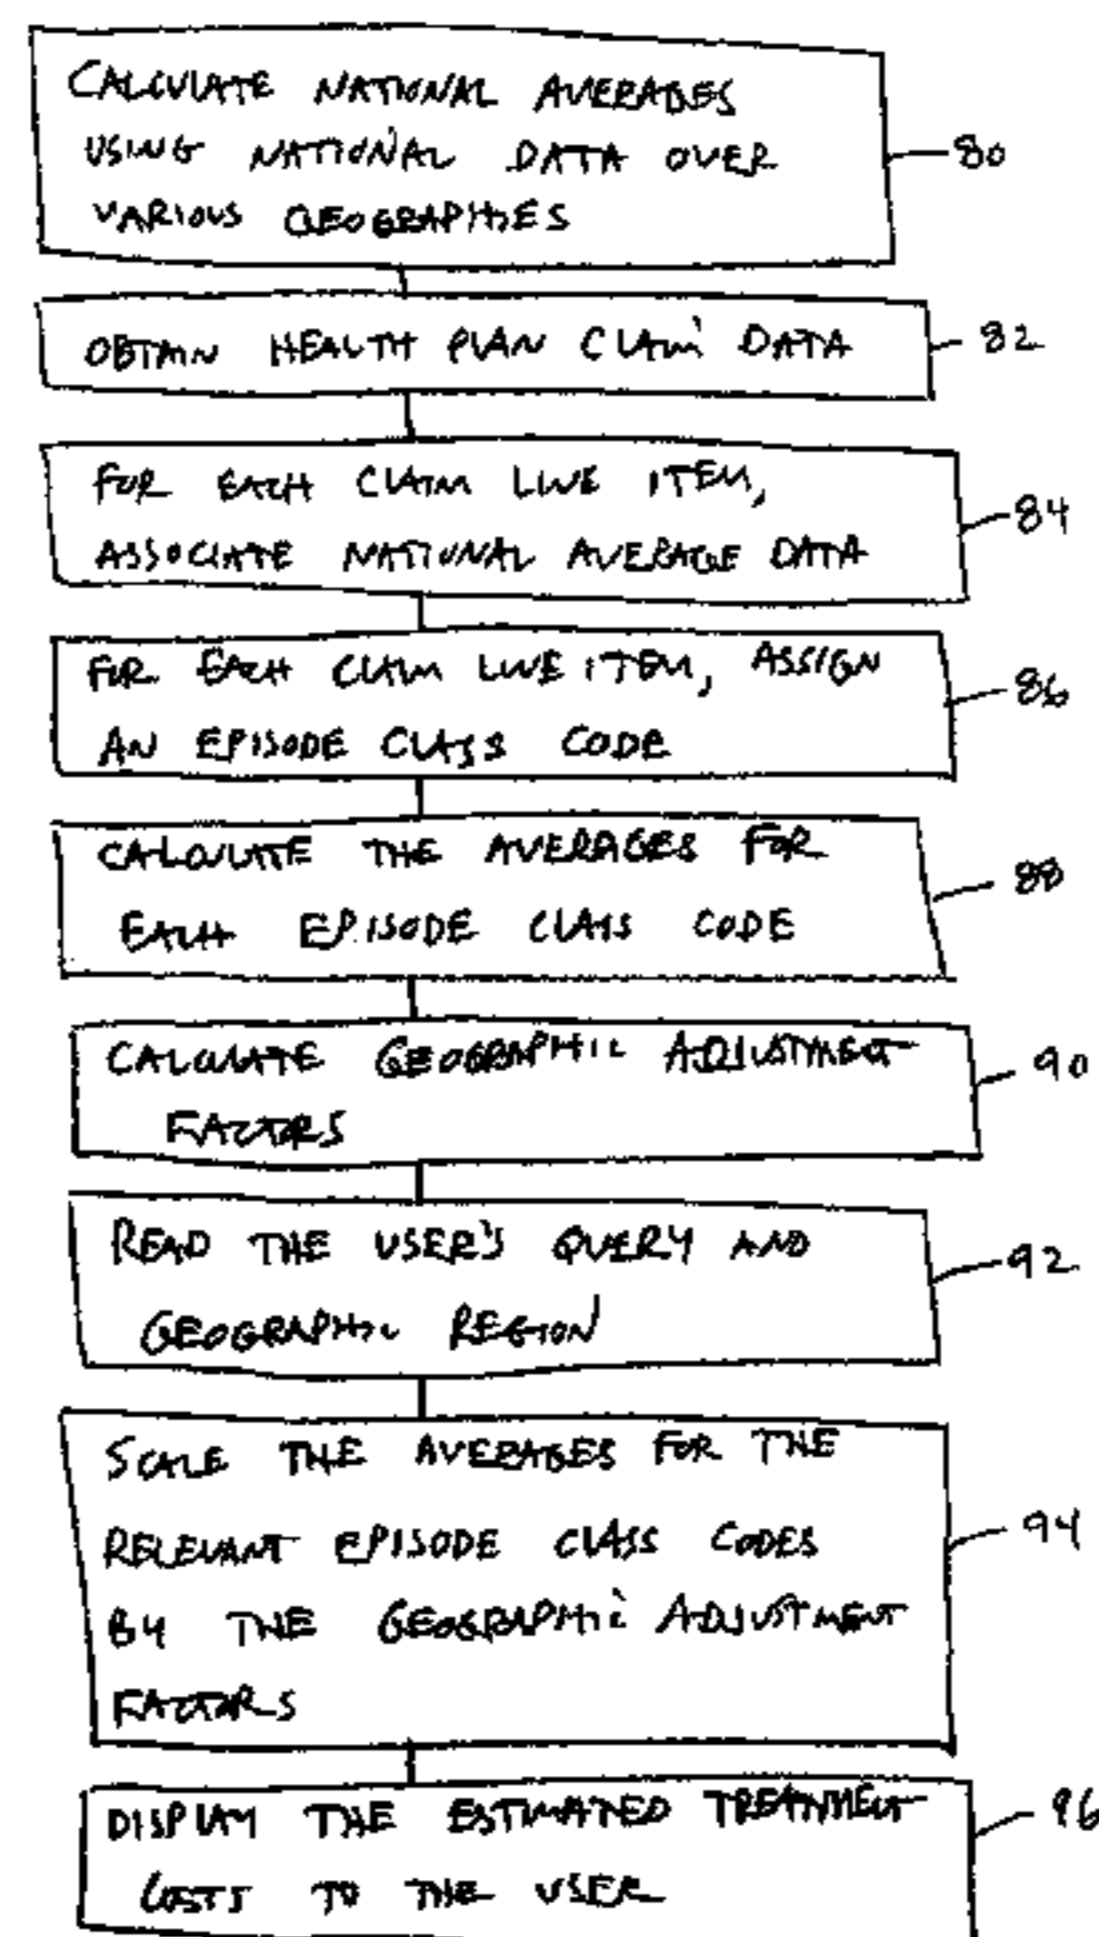 CALCULATE NATIONAL AVERAGES
USING NATIONAL DATA OVER
VARIOUS GEOGRAPHIES
80
OBTAIN HEALTH PLAN CLAIM DATA
82
FOR EACH CLAIM LINE ITEM,
ASSOCIATE NATIONAL AVERAGE DATA
84
FOR EACH CLAIM LINE ITEM, ASSIGN
AN EPISODE CLASS CODE
86
CALCULATE THE AVERAGES FOR
EACH EPISODE CLASS CODE
88
CALCULATE GEOGRAPHIC ADJUSTMENT
FACTORS
90
READ THE USER'S QUERY AND
GEOGRAPHIC REGION
92
SCALE THE AVERAGES FOR THE
RELEVANT EPISODE CLASS CODES
BY THE GEOGRAPHIC ADJUSTMENT
FACTORS
94
DISPLAY THE ESTIMATED TREATMENT
COSTS TO THE USER
96